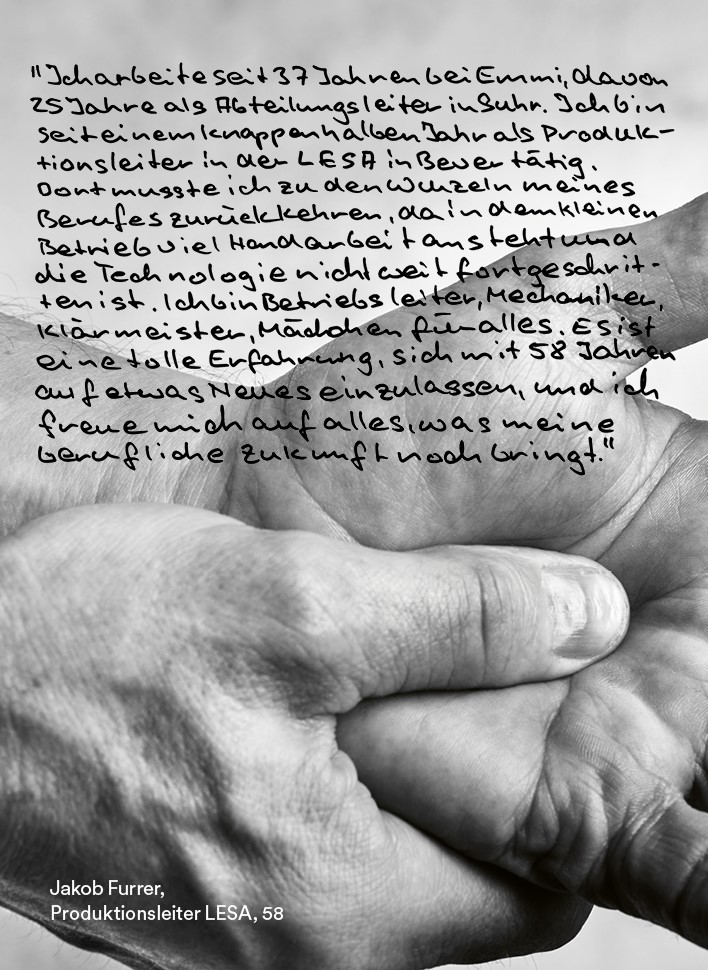 "Ich arbeite seit 37 Jahren bei Emmi, davon
25 Jahre als Abteilungsleiter in Suhr. Ich bin
seit einem knappen halben Jahr als Produk-
tionsleiter in der LESA in Bever tätig.
Dort musste ich zu den Wurzeln meines
Berufes zurückkehren, da in dem kleinen
Betrieb viel Handarbeit ansteht und
die Technologie nicht weit fortgeschrit-
ten ist. Ich bin Betriebsleiter, Mechaniker,
Klärmeister, Mädchen für alles. Es ist
eine tolle Erfahrung, sich mit 58 Jahren
auf etwas Neues einzulassen, und ich
freue mich auf alles, was meine
berufliche Zukunft noch bringt."
Jakob Furrer,
Produktionsleiter LESA, 58